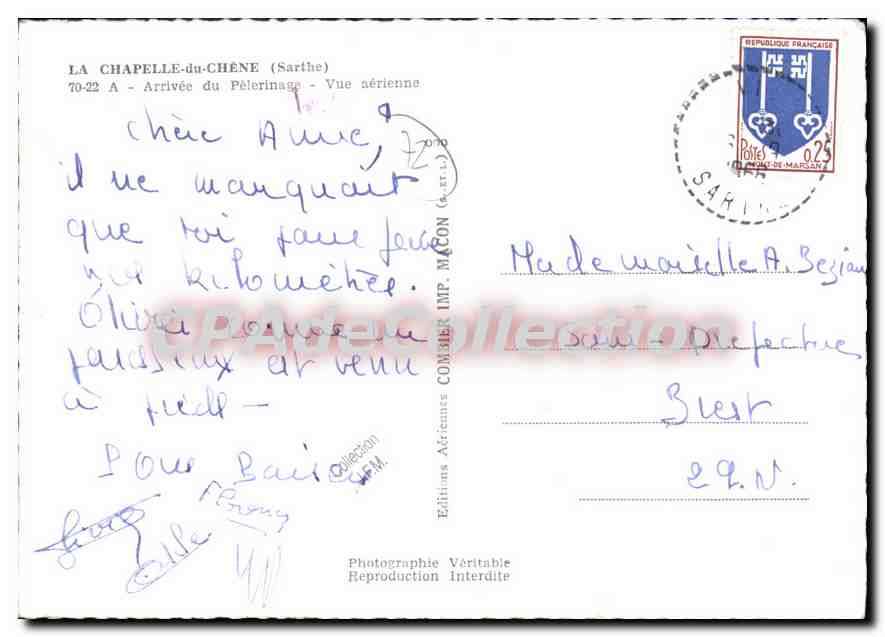 LA CHAPELLE-du-CHÊNE (Sarthe)
70-22 A - Arrivée du Pèlerinage - Vue aérienne
Chère Anne,
72
il ne manquait
que toi pour faire
kilomètres.
Olivier comme un
paresseux est venu
à pied —
Collection
H.F.M.
Editions Aériennes COMBIER IMP. MACON (S.-ET-L.)
Photographie Véritable
Reproduction Interdite
REPUBLIQUE FRANÇAISE
POSTES 0,25
MONT-DE-MARSAN
SARTHE
Mademoiselle A. Bezian
Sous-Préfecture
Brest
29. N.
CPAdeCollection